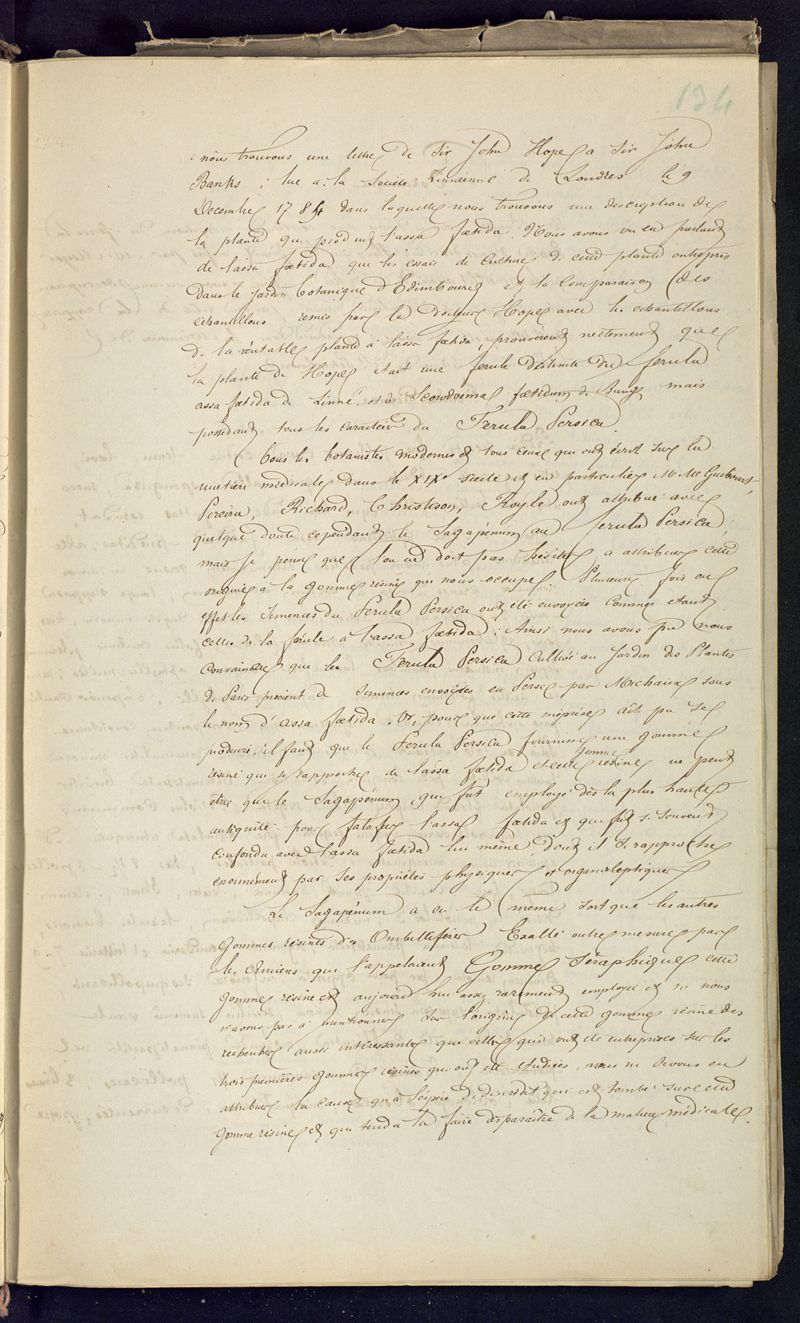 134
nous trouvons une lettre de Sir John Hope a Sir John
Banks, lue a la Société Linnéenne de Londres le 9
Decembre 1784 dans laquelle nous trouvons une description de
la plante qui produit l'assa foetida. Nous avons vu en parlant
de l'assa foetida que les essais de culture de cette plante entrepris
dans le jardin botanique d'Edimbourg et la comparaison des
échantillons remis par le docteur Hope avec les échantillons
de la véritable plante à l'assa foetida, prouvèrent nettement que
la plante de Hope était une ferule distincte du ferula
assa foetida de Linné et du Scorodosma foetidum de Bunge mais
possédant tous les caractères du Ferula Persica.
Tous les botanistes modernes et tous ceux qui ont écrit sur la
matière médicale dans le XIXe siècle et en particulier M. M. Guibourt,
Pereira, Richard, Christison, Royle ont attribué avec
quelque doute cependant le Sagapénum au ferula Persica;
mais je pense que l'on ne doit pas hésiter a attribuer cette
origine à la gomme résine qui nous occupe. Plusieurs fois en
effet les semences du Ferula Persica ont été envoyées comme étant
celles de la férule à l'assa foetida; Ainsi nous avons pu nous
convaincre que le Ferula Persica cultivé au Jardin des Plantes
de Paris provient de semences envoyées en Perse par Michaux sous
le nom d'assa foetida. Or, pour que cette méprise ait pu se
produire, il faut que le Ferula Persica fournisse une gomme
résine qui se rapproche de l'assa foetida et cette gomme résine ne peut
être que le Sagapénum, qui fut employé dès la plus haute
antiquité pour falsifier l'assa foetida et qui fut si souvent
confondu avec l'assa foetida lui même dont il se rapproche
énormément par ses propriétés physiques et organoleptiques
Le Sagapénum a eu le même sort que les autres
gommes résines des Ombellifères Exalté outre mesure par
les Anciens qui l'appelaient Gomme Séraphique cette
gomme résine est aujourd'hui assez rarement employée et si nous
n'avons pas à mentionner sur l'origine de cette gomme résine des
recherches aussi intéressantes que celles qui ont été entreprises sur les
trois premières gommes résines qui ont été étudiées, nous ne devons en
attribuer la cause qu'à l'espèce de discrédit qui est tombé sur cette
gomme résine et qui tend à la faire disparaître de la matière médicale.